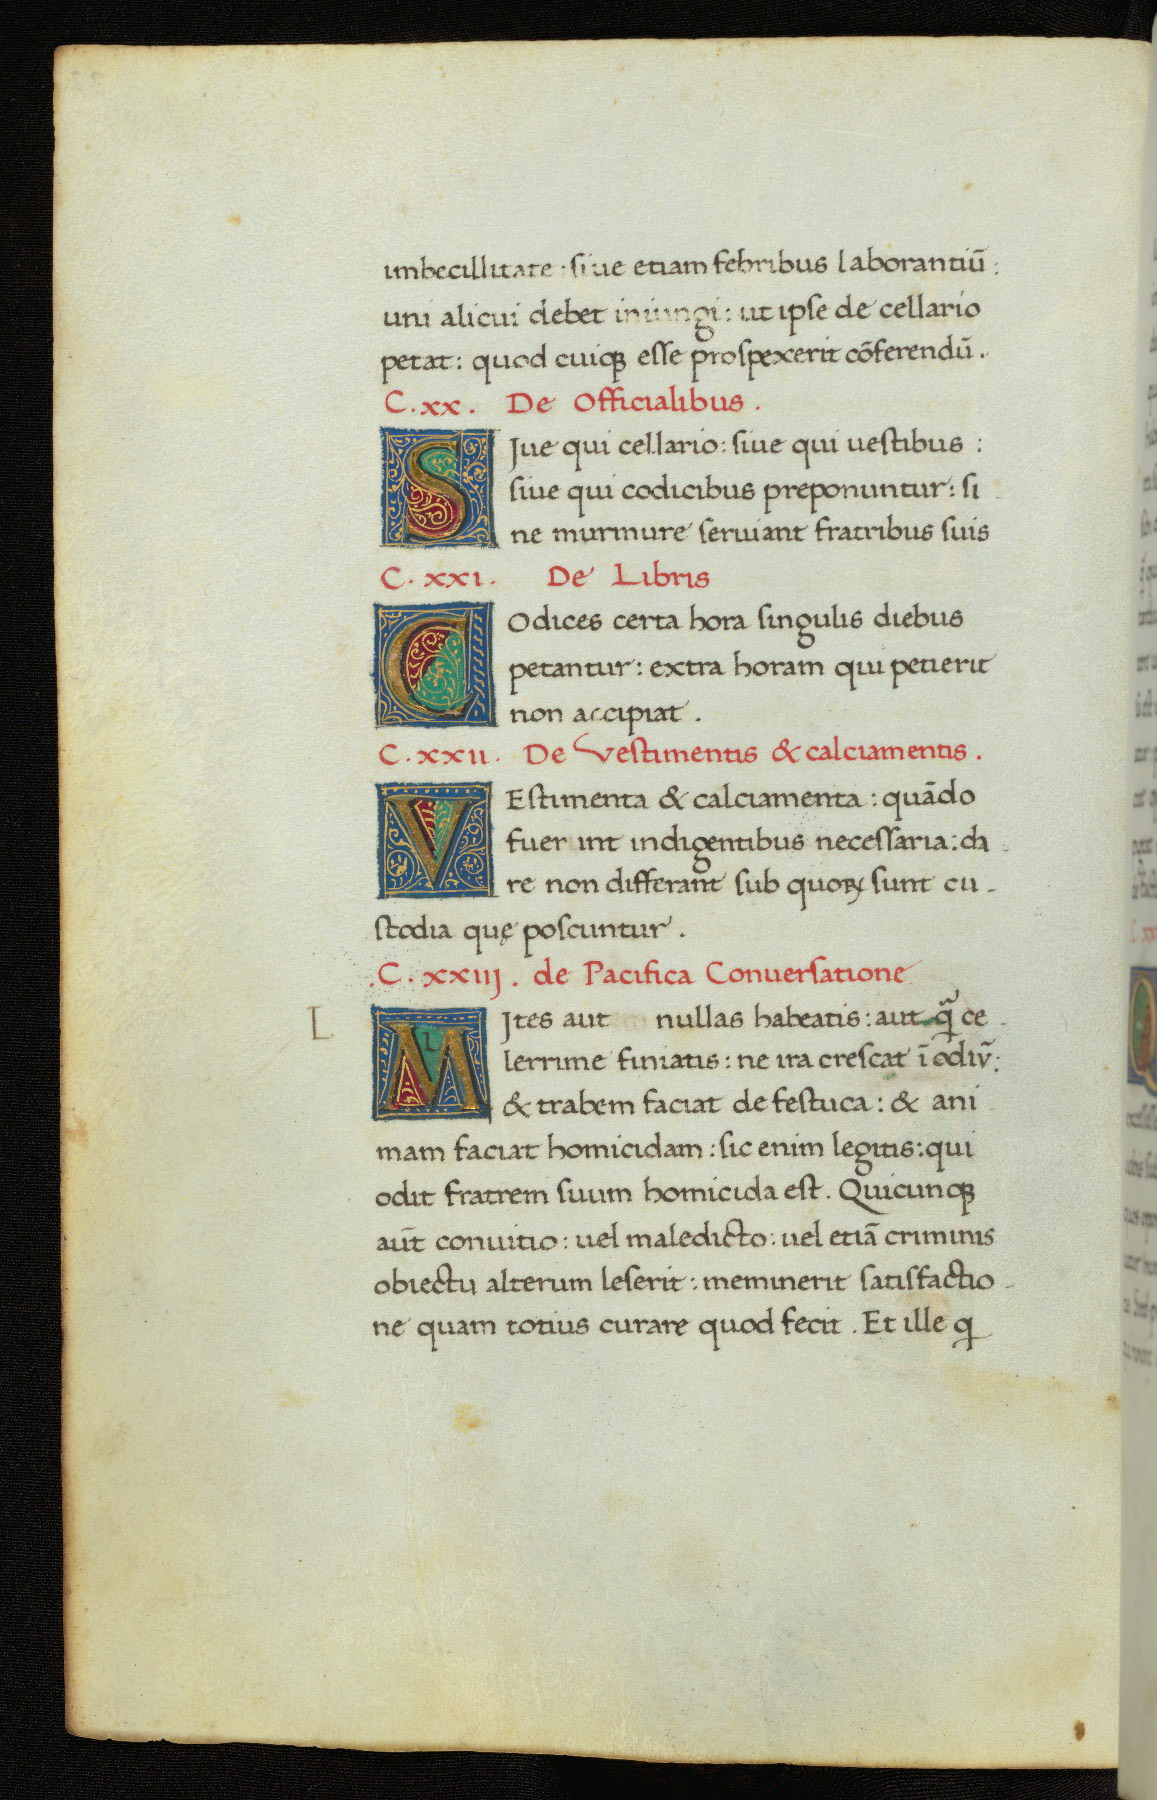 imbecillitate : siue etiam febribus laborantiū :
uni alicui debet iniungi : ut ipse de cellario
petat : quod cuiqꝫ esse prospexerit cōferendū .
C . xx . De Officialibus .
SJue qui cellario : siue qui uestibus :
siue qui codicibus preponuntur : si
ne murmure seruiant fratribus suis
C . xxi . De Libris
COdices certa hora singulis diebus
petantur : extra horam qui petierit
non accipiat .
C . xxii . De Vestimentis & calciamentis .
VEstimenta & calciamenta : quādo
fuerint indigentibus necessaria : da
re non differant sub quoꝝ sunt cu-
stodia quę poscuntur .
. C . xxiij . de Pacifica Conuersatione
L
L
MJtes aut nullas habeatis : aut q̄ ce
lerrime finiatis : ne ira crescat ī odiv̄ :
& trabem faciat de festuca : & ani
mam faciat homicidam : sic enim legitis : qui
odit fratrem suum homicida est . Quicunqꝫ
aūt conuitio : uel maledicto : uel etiā criminis
obiectu alterum leserit : meminerit satisfactio-
ne quam totius curare quod fecit . Et ille q